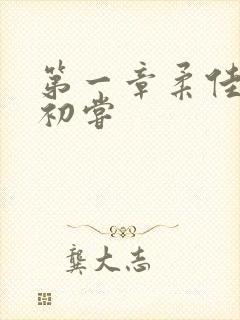 第一章柔佳
初尝
龚大志